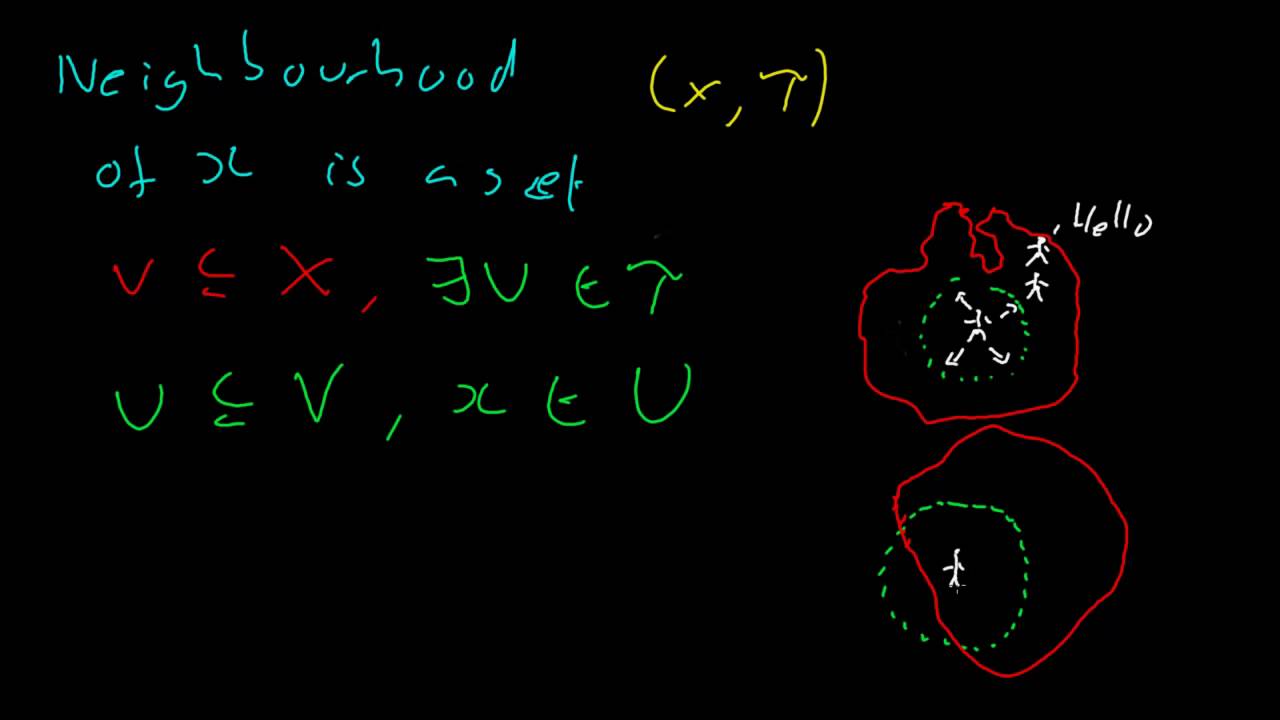 Neighbourhood (x, τ)
of x is a set
V ⊆ X, ∃U ∈ τ
U ⊆ V, x ∈ U
Hello